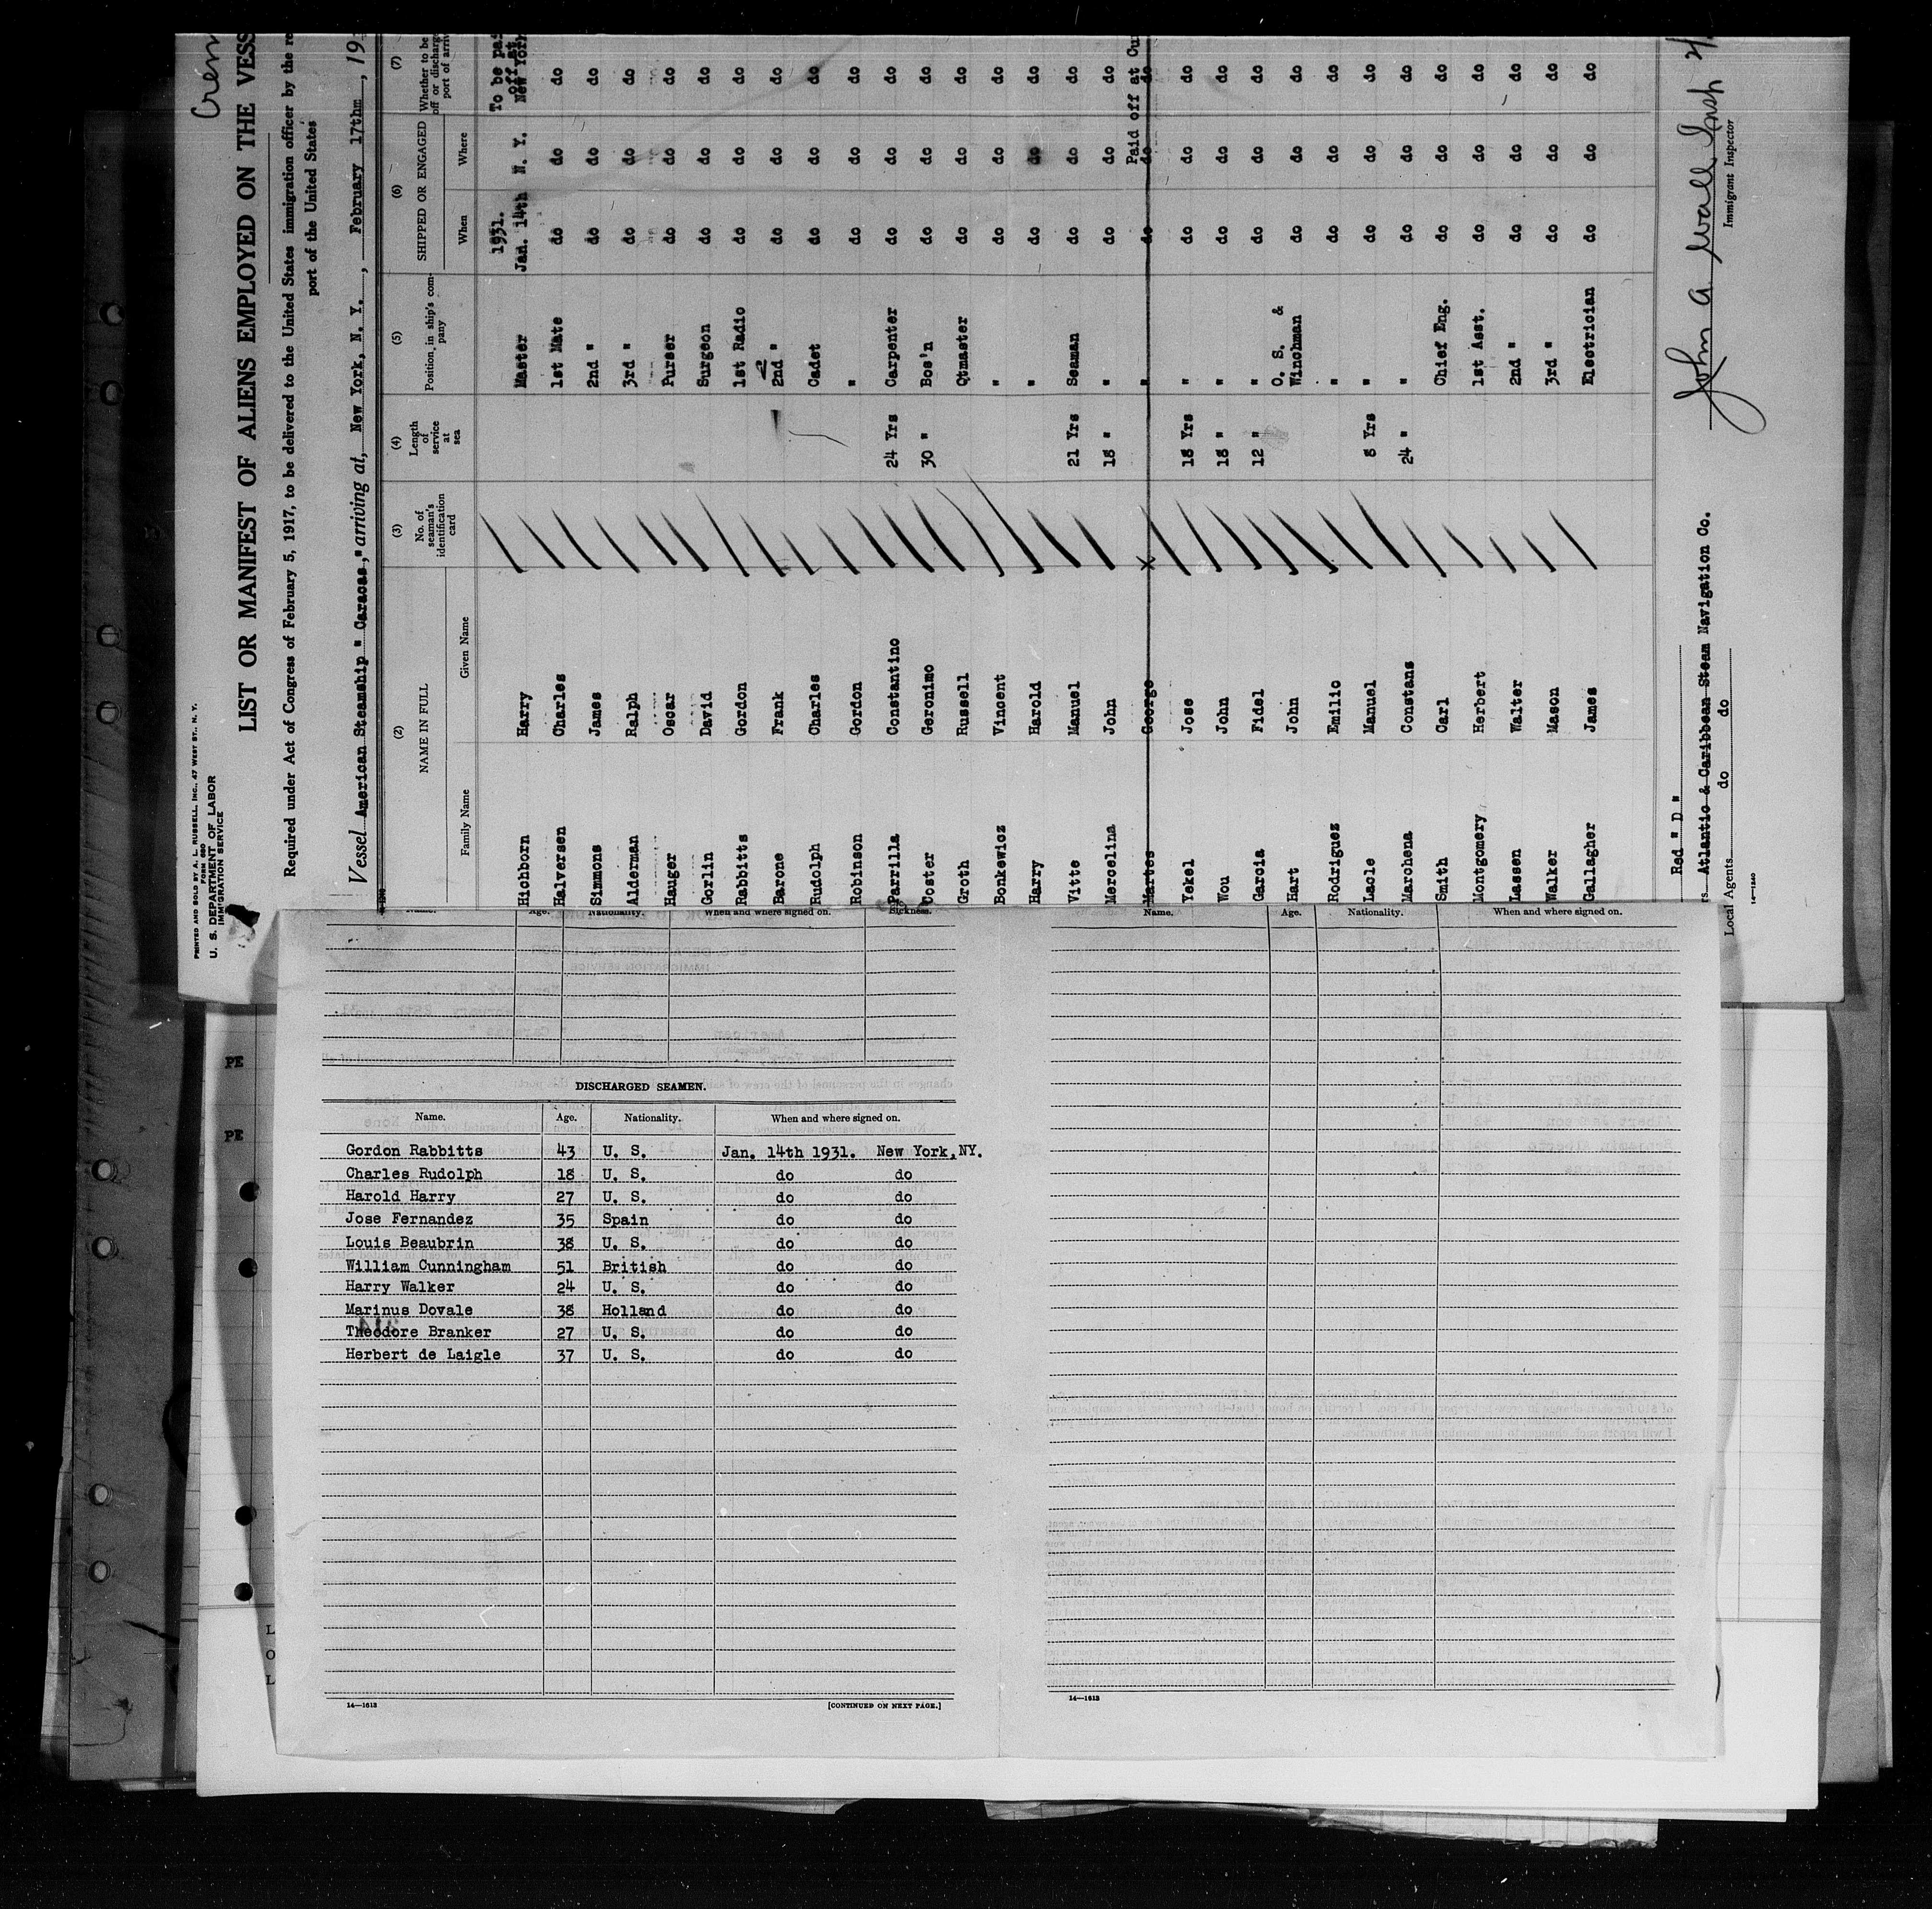 PRINTED AND SOLD BY A. L. RUSSELL, INC., 47 WEST ST., N. Y.
FORM 680
U. S. DEPARTMENT OF LABOR
IMMIGRATION SERVICE
Crew
LIST OR MANIFEST OF ALIENS EMPLOYED ON THE VESS
Required under Act of Congress of February 5, 1917, to be delivered to the United States immigration officer by the re
port of the United States
Vessel American Steamship " Caracas," arriving at, New York, N. Y. , February 17thm , 19
(2) (3) (4) (5) (6) (7)
NAME IN FULL No. of seaman's identification card Length of service at sea Position, in ship's company SHIPPED OR ENGAGED Whether to be off or discharge port of arriv
Family Name Given Name When Where
1931. To be pai off at
Hichborn Harry Master Jan. 14th N. Y. New York
Halversen Charles 1st Mate do do do
Simmons James 2nd " do do do
Alderman Ralph 3rd " do do do
Hauger Oscar Purser do do do
Gorlin David Surgeon do do do
Rabbitts Gordon 1st Radio do do do
Barone Frank 2nd " do do do
Rudolph Charles Cadet do do do
Robinson Gordon " do do do
Parrilla Constantino 24 Yrs Carpenter do do do
Coster Geronimo 30 " Bos'n do do do
Groth Russell Qtmaster do do do
Bonkewicz Vincent " do do do
Harry Harold " do do do
Vitte Manuel 21 Yrs Seaman do do do
Mercelina John 18 " " do do do
Paid off at Cu
Martes George " do do do
Yekel Jose 18 Yrs " do do do
Wou John 18 " " do do do
Garcia Fidel 12 " " do do do
Hart John O. S. & Winchman do do do
Rodriguez Emilio " do do do
Lacle Manuel 8 Yrs " do do do
Marchena Constans 24 " " do do do
Smith Carl Chief Eng. do do do
Montgomery Herbert 1st Asst. do do do
Lassen Walter 2nd " do do do
Walker Mason 3rd " do do do
Gallagher James Electrician do do do
Red " D "
rs Atlantic & Caribbean Steam Navigation Co.
Local Agents do do
14—1240
John A Wall Insp
Immigrant Inspector
Name. Age. Nationality. When and where signed on. Sickness.
PE
PE
DISCHARGED SEAMEN.
Name. Age. Nationality. When and where signed on.
Gordon Rabbitts 43 U. S. Jan. 14th 1931. New York, NY.
Charles Rudolph 18 U. S. do do
Harold Harry 27 U. S. do do
Jose Fernandez 35 Spain do do
Louis Beaubrin 38 U. S. do do
William Cunningham 51 British do do
Harry Walker 24 U. S. do do
Marinus Dovale 38 Holland do do
Theodore Branker 27 U. S. do do
Herbert de Laigle 37 U. S. do do
L
O
L
14—1613 [CONTINUED ON NEXT PAGE.]
Name. Age. Nationality. When and where signed on.
14—1613